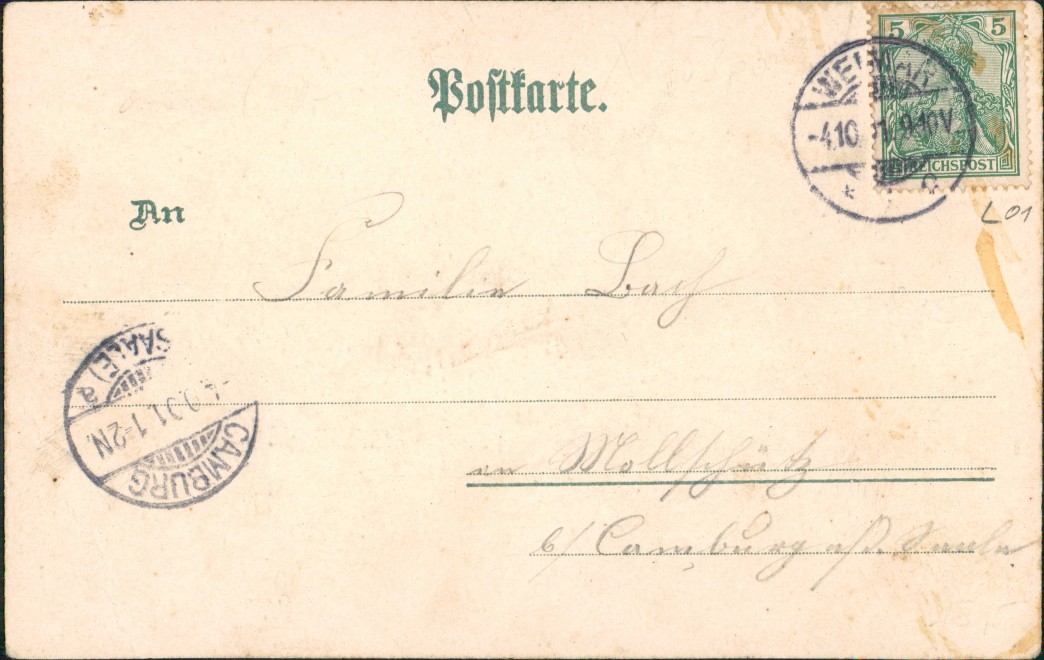 5 5
REICHSPOST
WEIMAR
-4.10.01. 9-10V
* c
L01
Postkarte.
An
Familie Bach
(SAALE) a
-4.10.01. 1-2N.
CAMBURG
in Mollschütz
b/ Camburg a/d. Saale